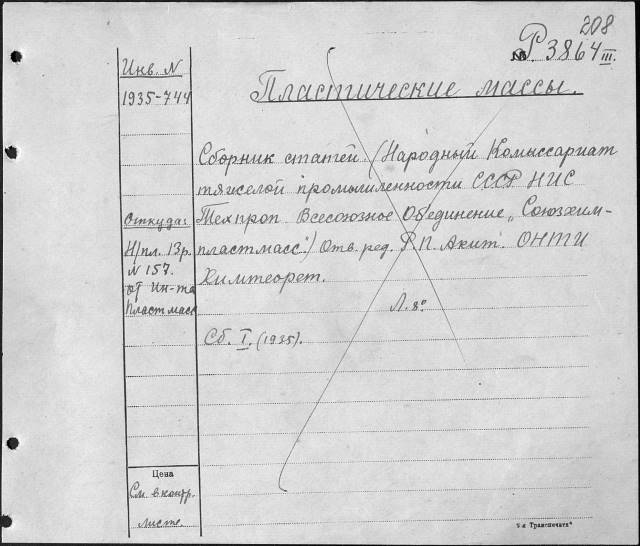 208
№ Р. 3864 III.
Инв. N
1935-744
Пластические массы.
Сборник статей. (Народный Комиссариат
тяжелой промышленности СССР НИС
Техпроп. Всесоюзное Объединение „Союзхим-
пластмасс".) Отв. ред. Ф.П. Акит. ОНТИ
Химтеорет.
Л. 8°
Сб. I. (1935).
Откуда:
Н/пл. 13р.
N 157.
от Ин-та
Пластмасс
Цена
См. в контр.
листе.
9-я Транспечать"